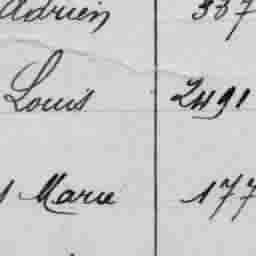 Adrien 337
Louis 2491
Marie 177